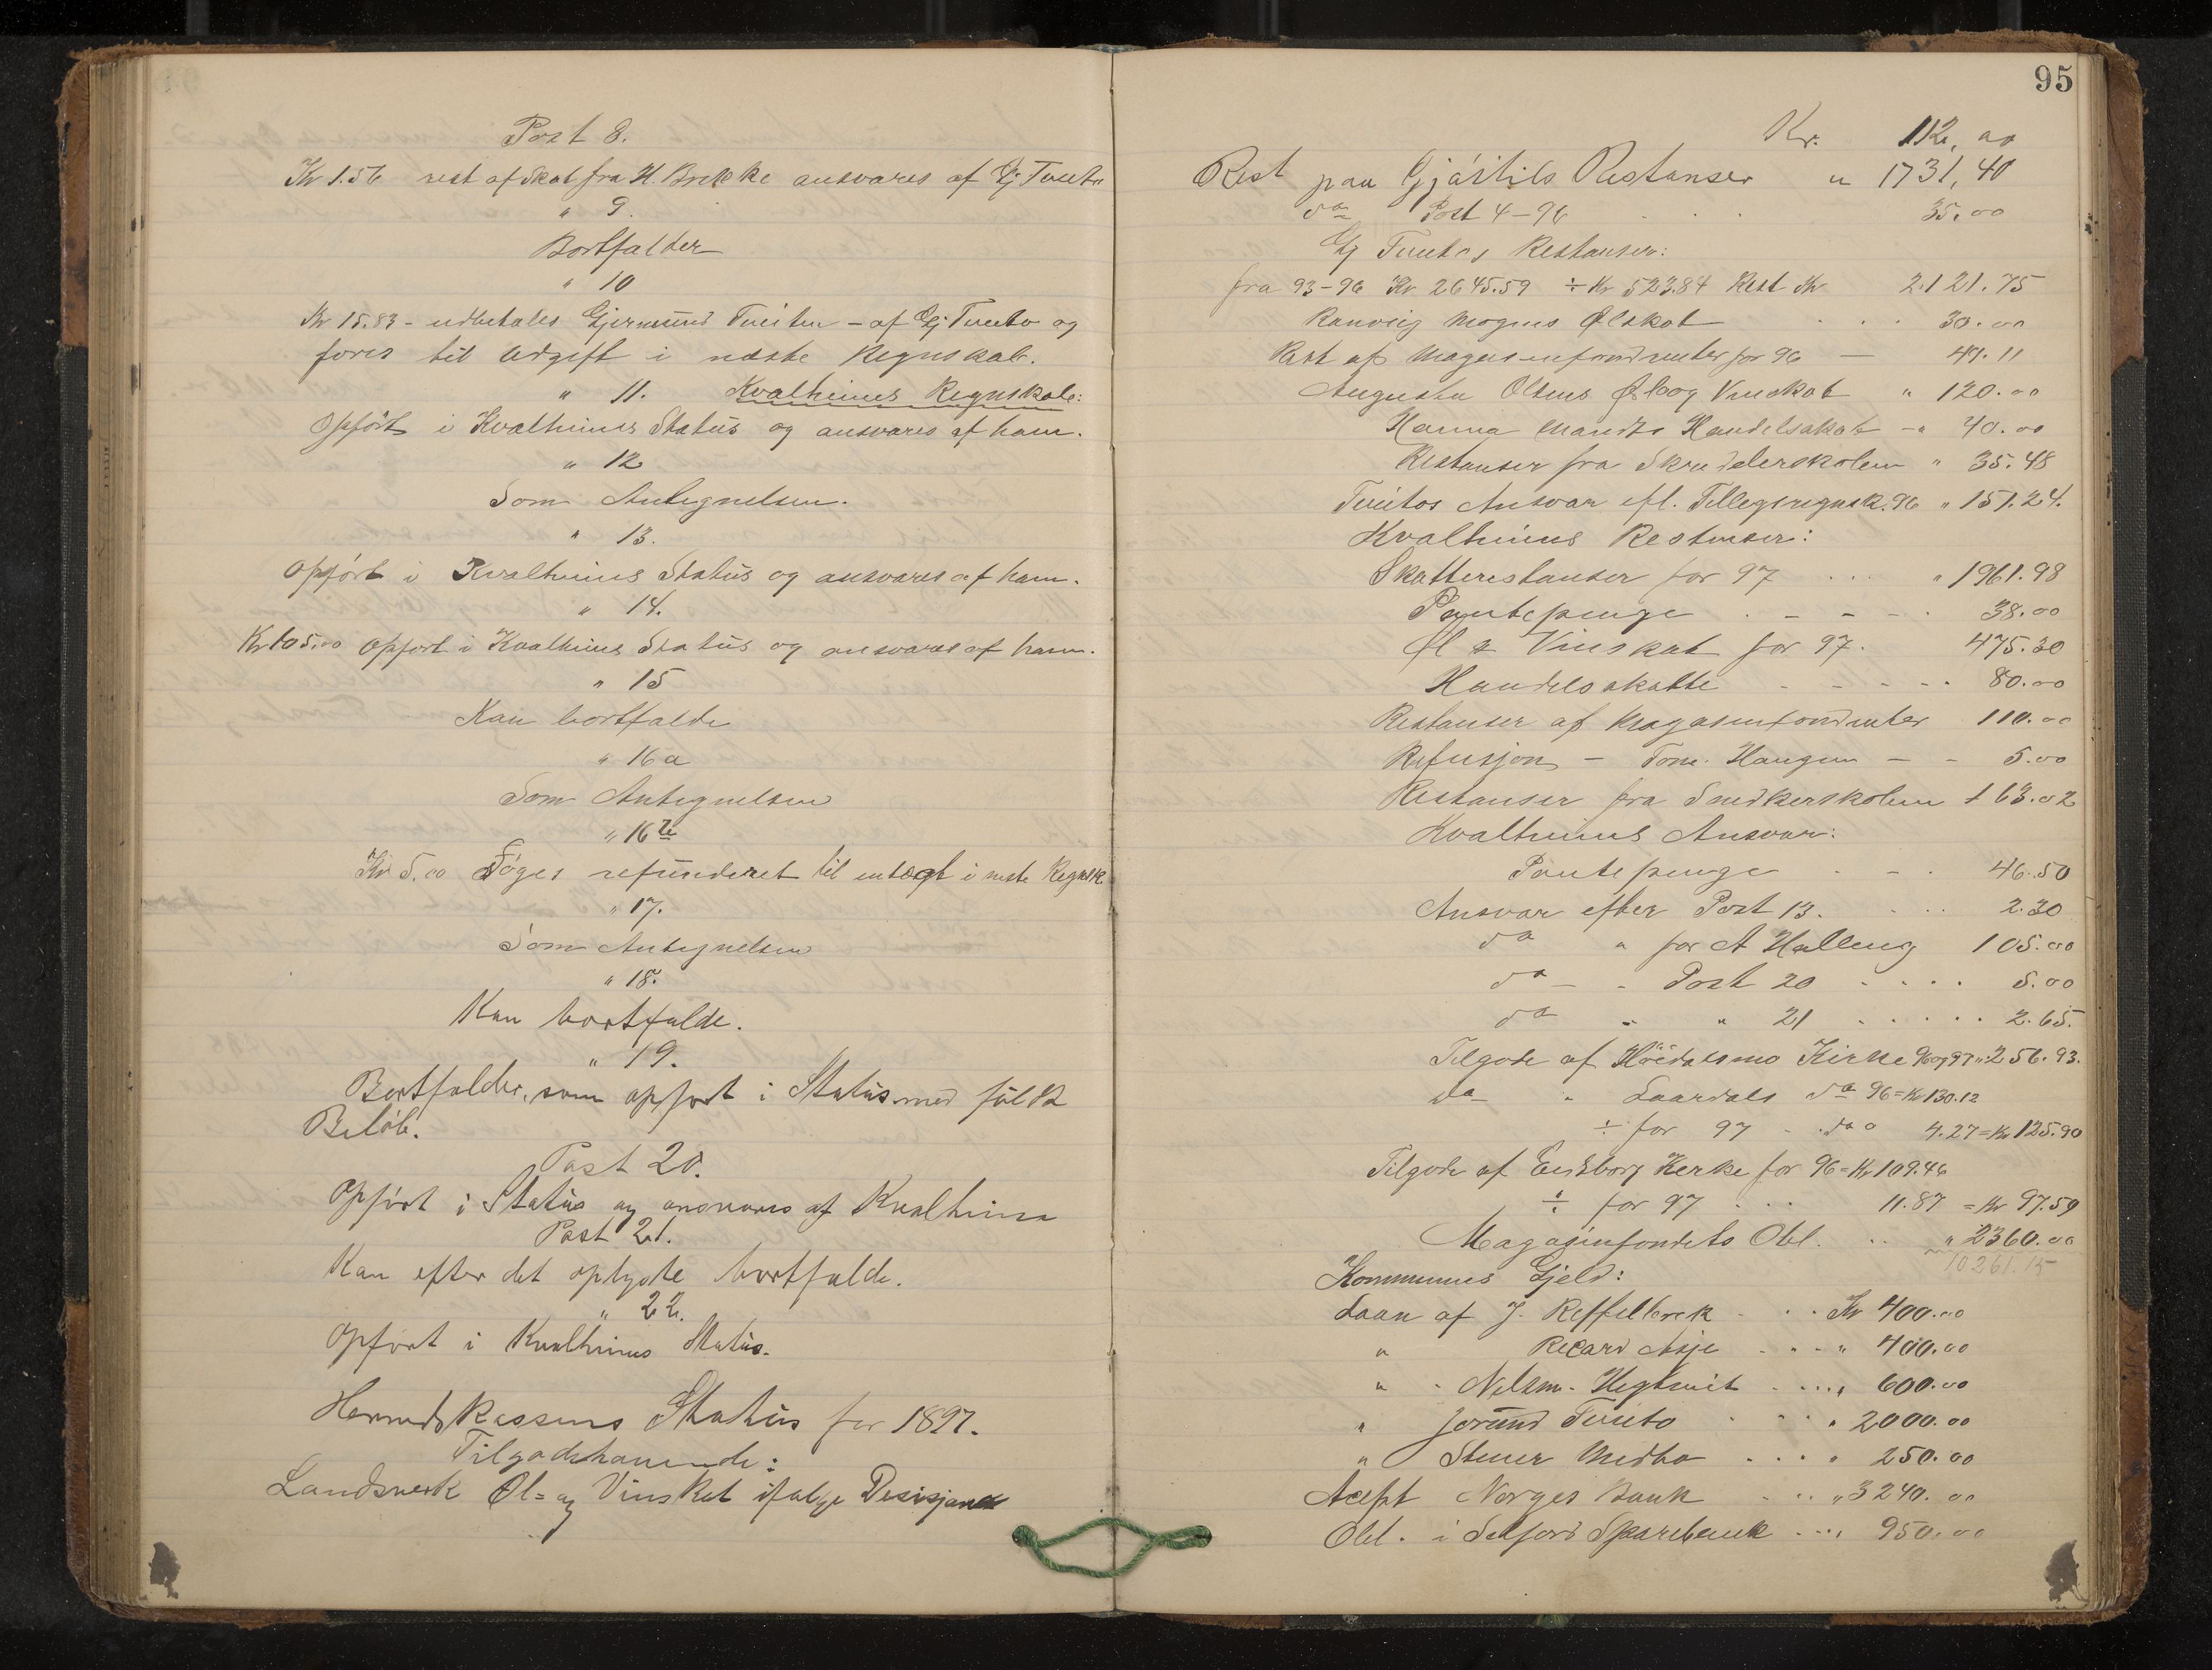 Post 8.
Kr 1.56 rest af Skat fra H. Brekke ansvares af Gj Tveito
" 9.
Bortfalder
" 10
Kr 15.83 - udbetales Gjermund Tveiten - af Gj Tveito og
føres til Udgift i næste Regnskab.
" 11. Kvalheims Regnskab:
Opført i Kvalheims Status og ansvares af ham.
" 12
Som Antegnelsen.
" 13.
Opført i Kvalheims Status og ansvares af ham.
" 14.
Kr 105.00 opført i Kvalheims Status og ansvares af ham.
" 15
Kan bortfalde
" 16 a
Som Antegnelsen
" 16 b
Kr 5.00 Søges refunderet til indtægt i neste Regnsk
" 17.
Som Antegnelsen
" 18.
Kan bortfalde.
" 19.
Bortfalder, som opført i Status med fuldt
Beløb.
Post 20.
Opført i Status og ansvares af Kvalheim
Post 21.
Kan efter det oplyste bortfalde.
" 22.
Opført i Kvalheims Status.
Herredskassens Status for 1897.
Tilgodehavende:
Landsverk Øl= og Vinskat ifølge Desisjon
95
Kr. 112,00
Rest paa Gjøstils Restanser " 1731,40
do Post 4-96 . . . 35.00
Gj Tveitos Restanser:
fra 93-96 Kr 2645.59 ÷ Kr 523.84 Rest Kr 2121.75
Ranveig Mogens Ølskat . . . 30.00
Rest af Magasinfondrenter for 96 — 49.11
Augusta Olsens Øl og Vinskat " 120.00
Hanna Mandts Handelsskat - " 40.00
Restanser fra Skrædderskolen " 35.48
Tveitos Ansvar efl. Tillegsregnsk. 96 " 151.24.
Kvalheims Restanser:
Skatterestanser for 97 . . . " 1961.98
Pantepenge . - - - . 38.00
Øl & Vinskat for 97. 475.30
Handelsskatte - - - - - 80.00
Restanser af Magasinfondrenter 110.00
Refusjon - Tone Haugen - - 5.00
Restanser fra Snedkerskolen 163.02
Kvalheims Ansvar:
Pantepenge . - . 46.50
Ansvar efter Post 13. . . . 2.30
do " for A Halleng 105.00
do - - Post 20 . . . . 5.00
do - " 21 . . . . . 2.65.
Tilgode af Høidalsmo Kirke 96 og 97 " 256.93.
do " Laardals do 96 = Kr 130.12
÷ for 97 - do 4.27 = Kr 125.90
Tilgode af Eidsborg Kirke for 96 = Kr 109.46
÷ for 97 . . . 11.87 = Kr 97.59
Magasinfondets Obl. . . " 2360.00
10261.15
Kommunens Gjeld:
Laan af J. Reffelbrek . . . Kr 400.00
" Recard Asje . . - " 400.00
" - Nelsm. Hegtveit . . . " 600.00
" Jorund Tveito . . . " 2000.00
" Stener Medbo . . . " 250.00
Acept Norges Bank . . . " 3240.00
Obl. i Seljord Sparebank . . . " 950.00